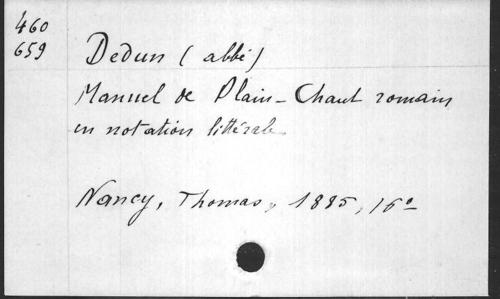 460
659
Dedun (abbé)
Manuel de Plain-Chant romain
en notation littérale
Nancy, Thomas, 1885, 16°